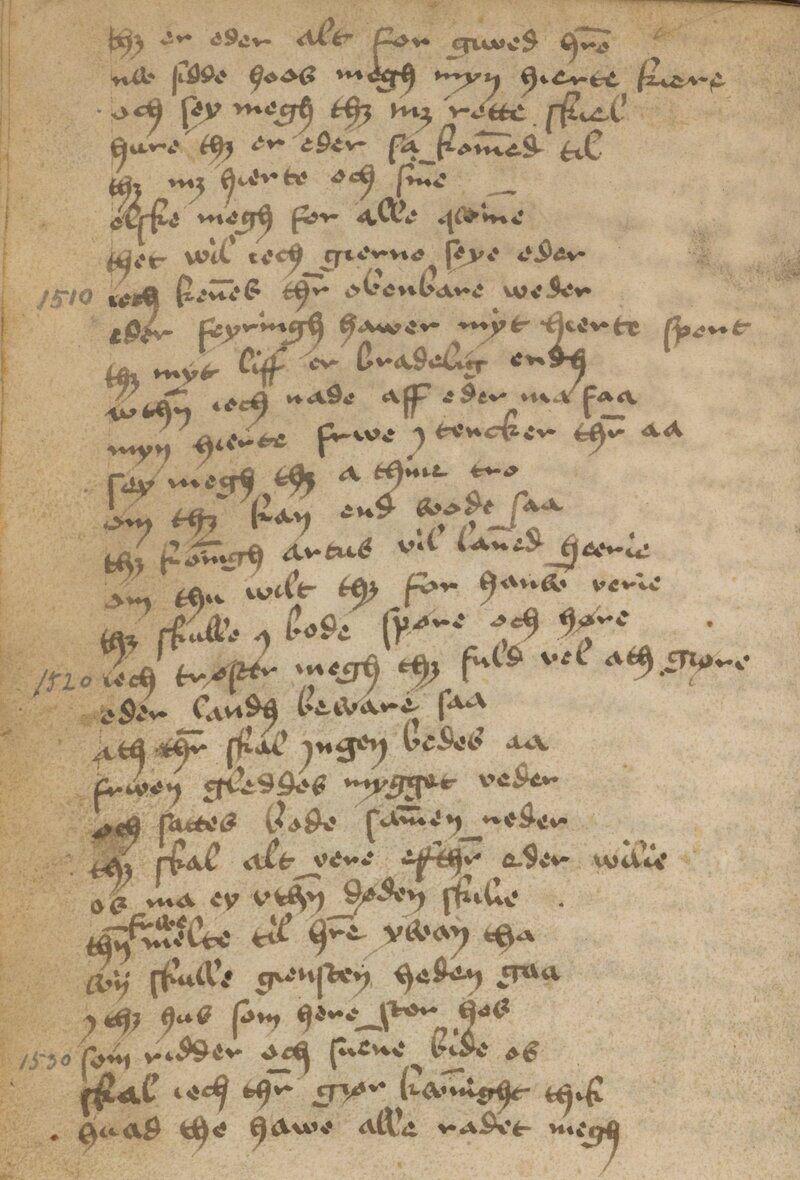 thꝫ er eder alt for giwed hr̅e
nw sidde hoos megh myn hierte kiere
och sey megh thꝫ mꝫ rette skiel
hure thꝫ er eder sa kom̅ed til
thꝫ mꝫ hierte och sin̅e
elske megh for alle qwin̅e
thet wil iech gierne seye eder
1510 iech ken̅es thr̅ obenbare weder
eder feyringh hawer myt hierte spent
thꝫ myt liff er bradelig endh
wthn̅ iech nade aff eder ma faa
myn hierte frwe ȷ tencker thr̅ aa
sey megh thꝫ a thine tro
om thꝫ kan end wode saa
thꝫ kon̅igh artus vil lan̅ed heerie
om thu wilt thꝫ for hanw̅ verie
thꝫ skulle ȷ bode spøre och høre
1520 iech trøster megh thꝫ fuld vel ath giøre
eder landh beware saa
ath thr̅ skal ȷngen bedes aa
frwen gleddes mygget veder
och sattes bode sam̅en neder
thꝫ skal alt vere effthr̅ eder wilie
os ma ey vthn̅ døden skilie
thn̅ frwe melte til hr̅e ywan tha
wij skulle giensten heden gaa
ȷ thꝫ hus som here stor hos
1530 som ridder och suene bide os
skal iech thr̅ giør kwn̅ight thik
huad the hawe alle radet megh